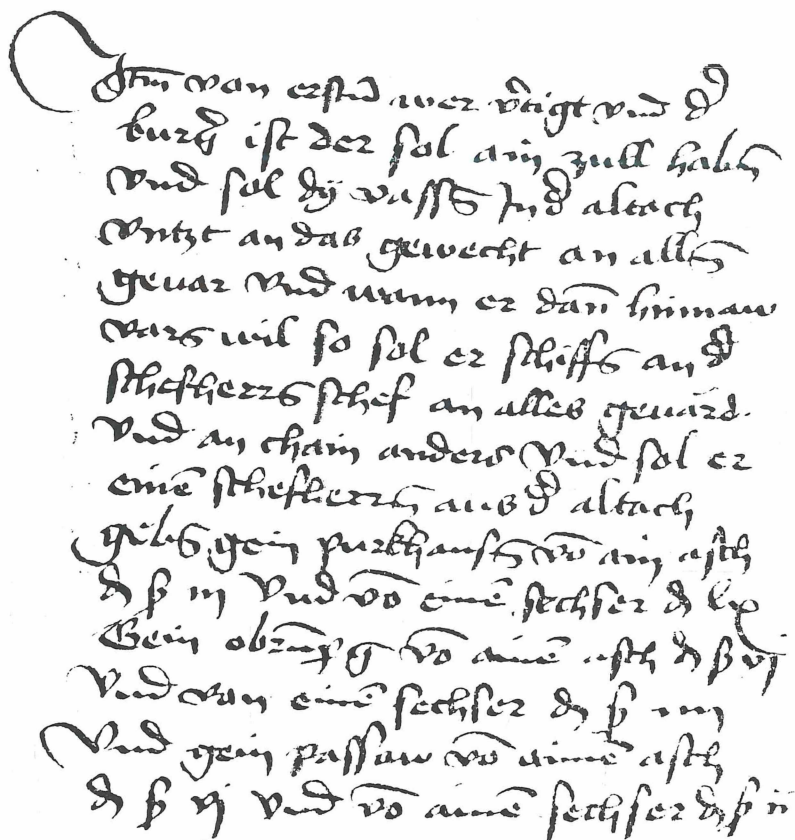 Itm̄ von erst wer v̄tigt vnd d̾
burg̾ ist der sol ain züll habn̄
vnd sol dÿ vassn̄ In d̾ altach
vntzt an das gewecht an alln̄
geuar vnd wann er dan̄ hinnaw
varn wil so sol er schiffn̄ an d̾
schefherrn schef an alles geuärd
vnd an chain anders vnd sol er
einē schefherrn aus d̾ altach
gebn̄ gein purkhausn̄ vō ain asch
₰ ß iij vnd vō einē sechser ₰ lx
Gein obrnp̄g vō ainē asch ₰ ß vj
vnd von einē sechser ₰ ß iiij
vnd gein passaw vō ainē asch
₰ ß vj vnd vō ainē sechser ₰ ß ii